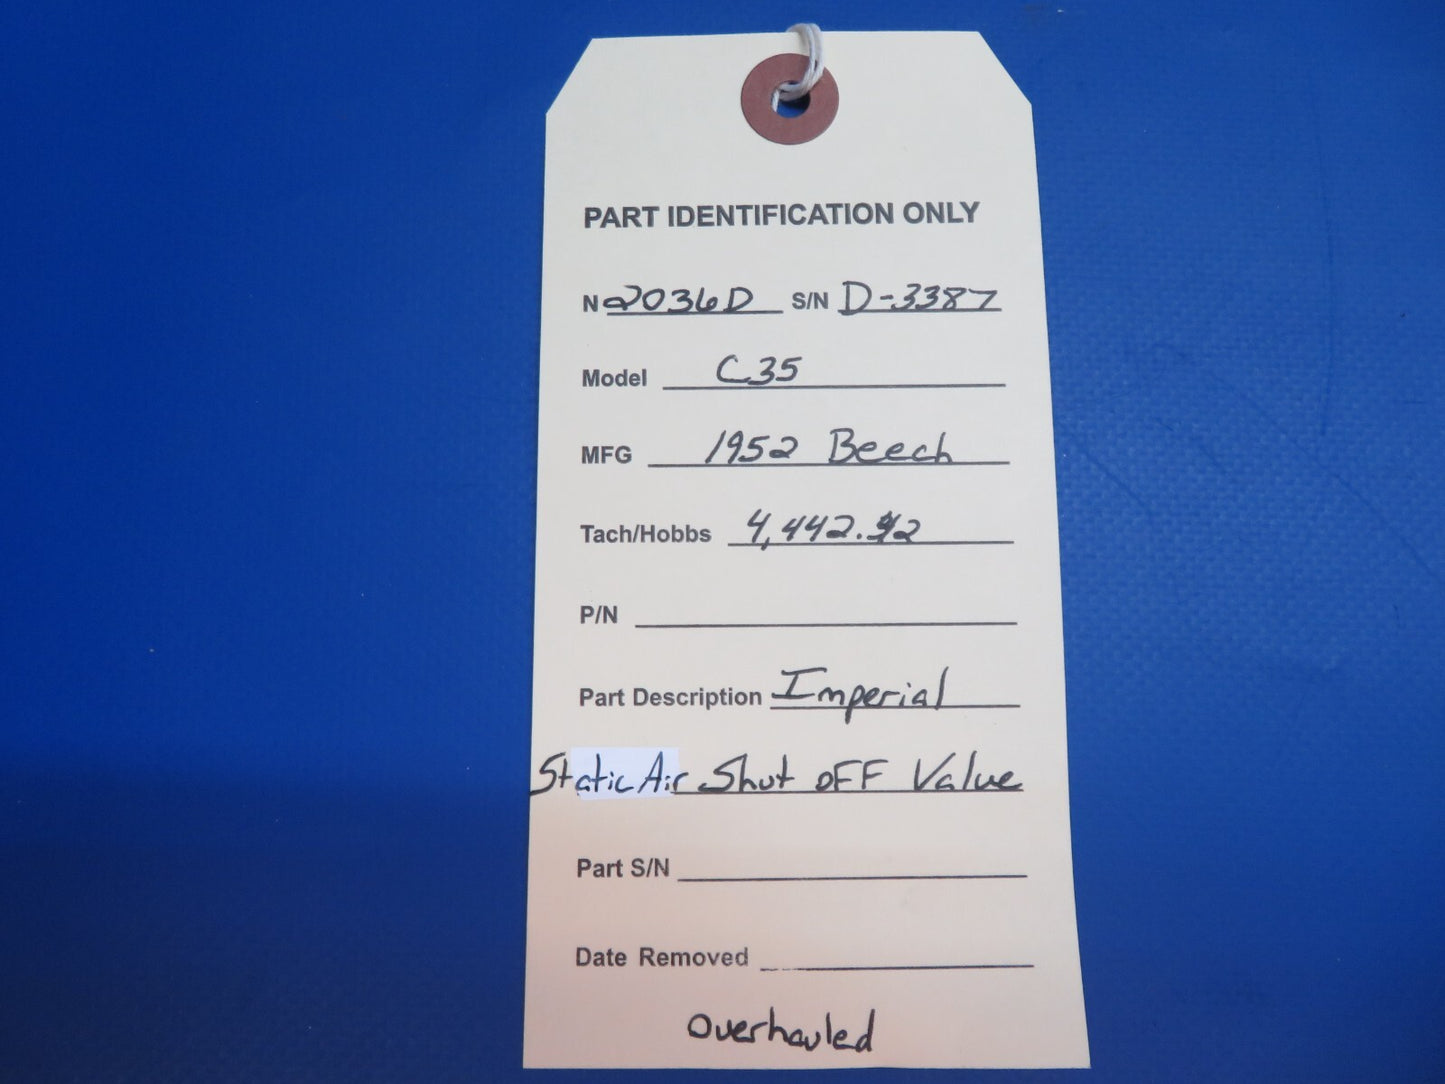 PART IDENTIFICATION ONLY
N 2036D S/N D-3387
Model C35
MFG 1952 Beech
Tach/Hobbs 4,442.92
P/N
Part Description Imperial
Static Air Shut oFF Valve
Part S/N
Date Removed
Overhauled